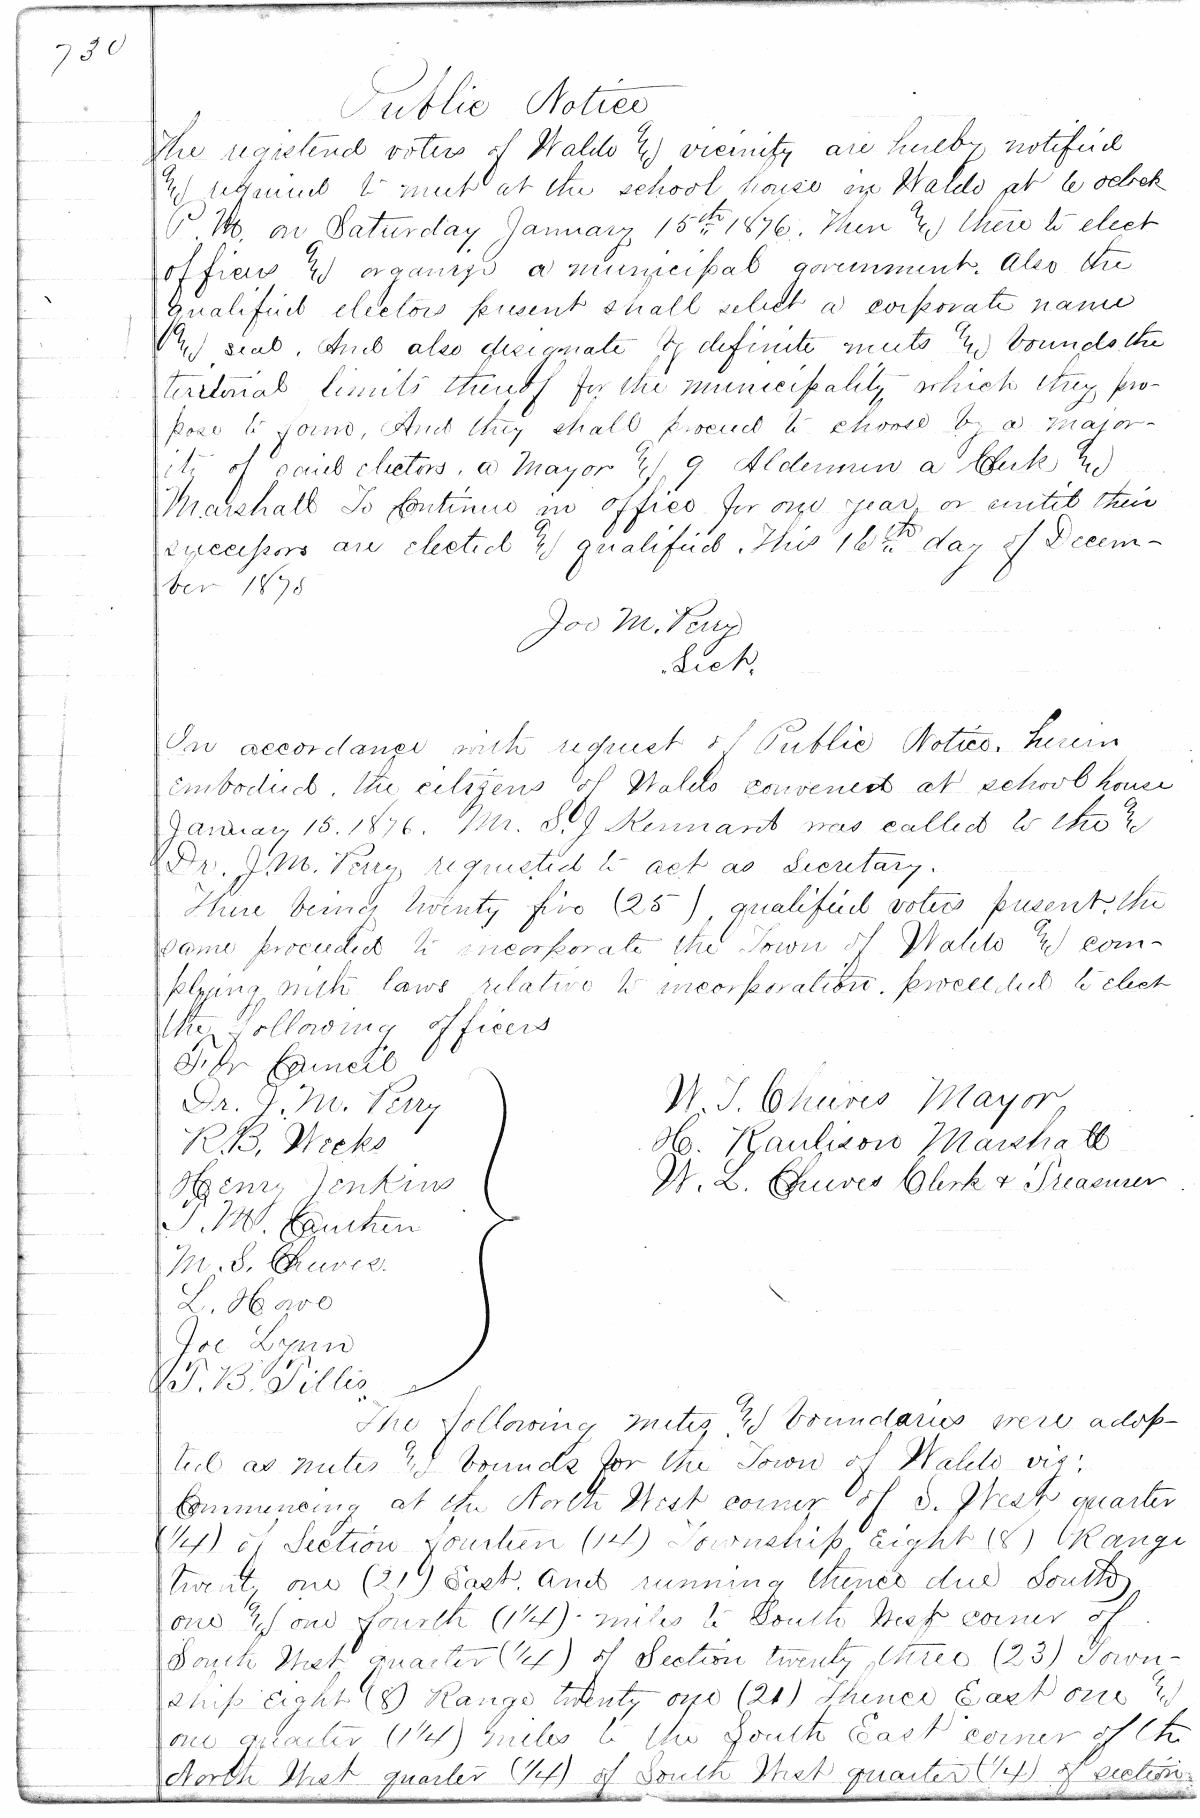 730
Public Notice
The registered voters of Waldo & vicinity are hereby notified
& required to meet at the school house in Waldo at 6 oclock
P. M. on Saturday January 15th 1876. Then & there to elect
officers & organize a municipal government. Also the
qualified electors present shall select a corporate name
& seal. And also designate by definite meets & bounds the
territorial limits thereof for the municipality which they pro-
pose to form, And they shall proceed to choose by a major-
ity of said electors. a Mayor & 9 Aldermen a Clerk &
Marshall To Continue in office for one year or until their
successors are elected & qualified. This 16th day of Decem-
ber 1875
Joe M. Perry
Sect.
In accordance with request of Public Notice. herein
embodied. the citizens of Waldo convened at school house
January 15. 1876. Mr. S. J Kennard was called to the &
Dr. J. M. Perry requested to act as Secretary.
There being twenty five (25) qualified voters present. the
same proceeded to incorporate the Town of Waldo & com-
plying with laws relative to incorporation. proceeded to elect
the following officers
For Council
Dr. J. M. Perry
R. B. Weeks
Henry Jenkins
T. W. Cauthen
M. S. Cheves.
L. Howe
Joe Lynn
T. B. Tillis.
W. T. Cheeves Mayor
H. Raulison Marshall
W. L. Cheeves Clerk & Treasurer
The following metes & boundaries were adop-
ted as metes & bounds for the Town of Waldo viz:
Commencing at the North West corner of S. West quarter
(1/4) of Section fourteen (14) Township Eight (8) Range
twenty one (21) East. And running thence due South
one & one fourth (1 1/4) miles to South West corner of
South West quarter (1/4) of Section twenty three (23) Town-
ship Eight (8) Range twenty one (21) Thence East one &
one quarter (1 1/4) miles to the South East corner of the
North West quarter (1/4) of South West quarter (1/4) of section